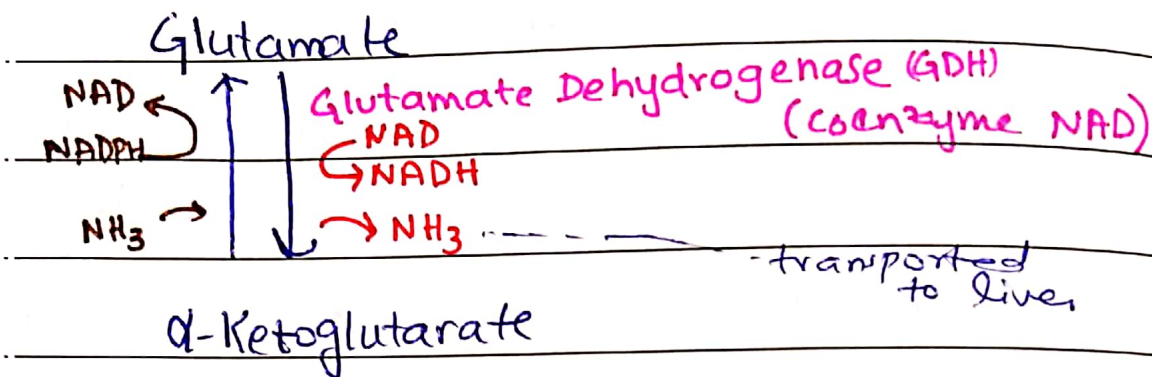 Glutamate
NAD
NADPH
Glutamate Dehydrogenase (GDH)
(coenzyme NAD)
NAD
NADH
NH3
NH3
transported
to liver
α-Ketoglutarate